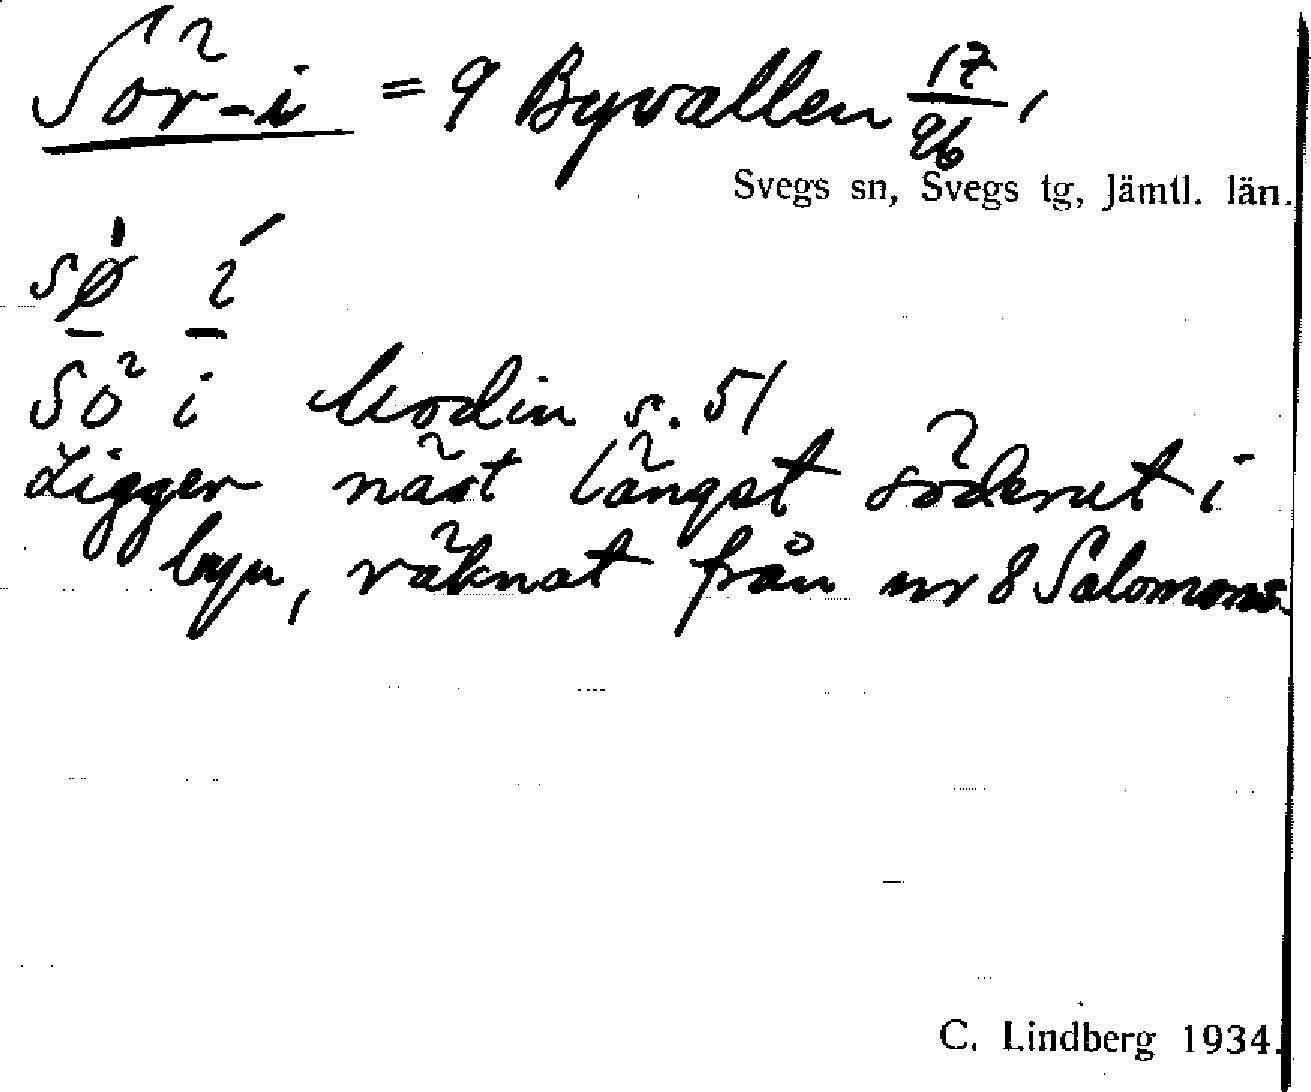 Sör-i = 9 Byvallen 17/96,
Svegs sn, Svegs tg, Jämtl. län.
sø i
Sö i Modin s. 51
Ligger näst längst söderut i
byn, räknat från nr 8 Salomons.
C. Lindberg 1934.